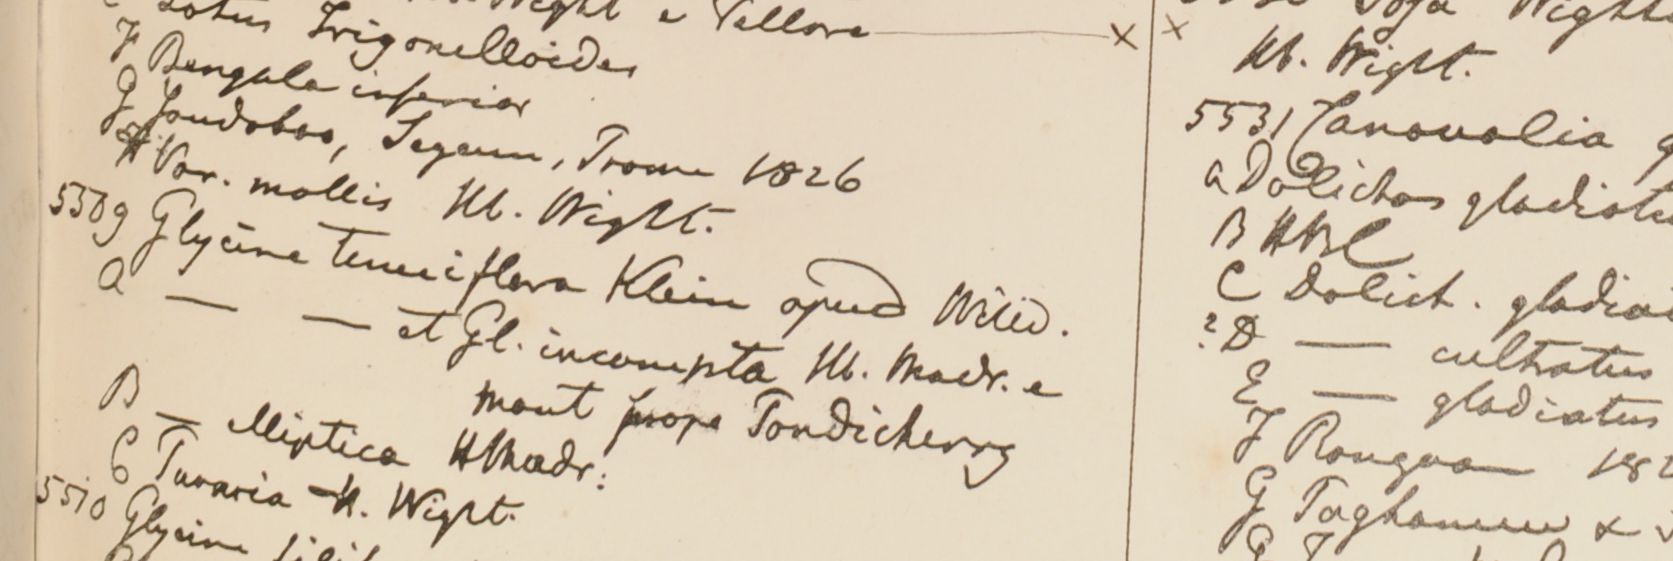 Wight e Vellore × 
Lotus Trigonelloides
F Bengala inferior
G Yandoboo, Segaen, Prome 1826
H Var. mollis Hb. Wight.
5509 Glycine tenuiflora Klein apud Willd.
a — — et Gl. incompta Hb. Madr. e
mont prope Pondicherry
B — elliptica HMadr:
C Turaria H. Wight.
5510 Glycine
× Soja Wight
Hb. Wight.
5531 Canavalia
a Dolichos gladiatu
B HBC
C Dolich. gladia
? D — cultratus
E — gladiatus
F Rangoon 182
G Taghamew &